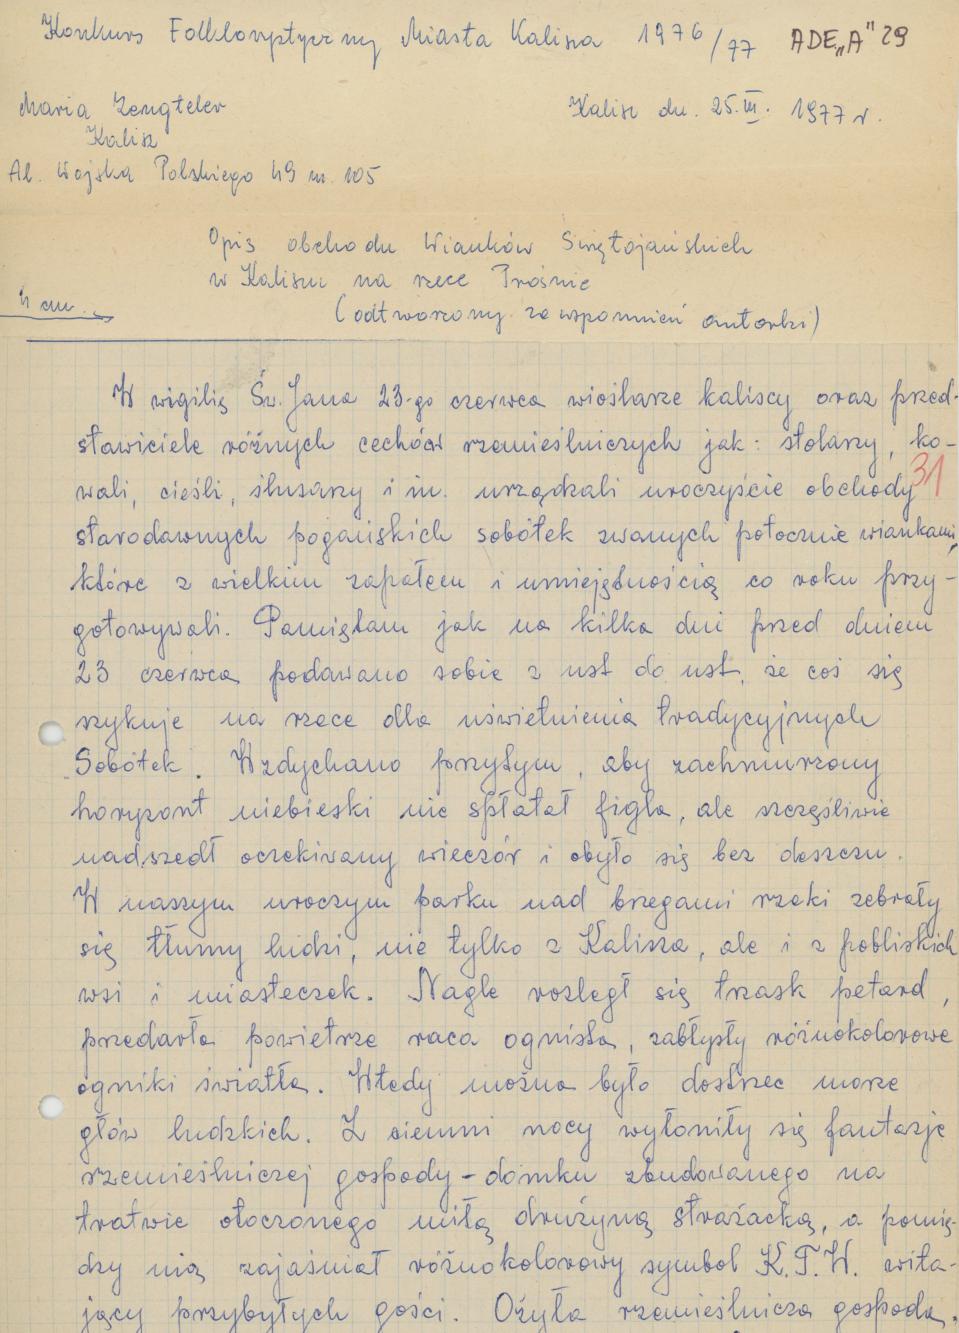 Konkurs Folklorystyczny Miasta Kalisza 1976/77 ADE „A” 29
Maria Zengteler Kalisz dn. 25.III. 1977 r.
Kalisz
Al. Wojska Polskiego 49 m. 105
Opis obchodu Wianków Świętojańskich
w Kaliszu na rzece Prośnie
4 cm. (odtworzony ze wspomnień autorki)
W wigilię Św. Jana 23-go czerwca wioślarze kaliscy oraz przed-
stawiciele różnych cechów rzemieślniczych jak: stolarzy, ko-
wali, cieśli, ślusarzy i in. urządzali uroczyście obchody
31
starodawnych pogańskich sobótek zwanych potocznie wiankami,
które z wielkim zapałem i umiejętnością co roku przy-
gotowywali. Pamiętam jak na kilka dni przed dniem
23 czerwca podawano sobie z ust do ust, że coś się
szykuje na rzece dla uświetnienia tradycyjnych
Sobótek. Wzdychano przytym, aby zachmurzony
horyzont niebieski nie spłatał figla, ale szczęśliwie
nadszedł oczekiwany wieczór i obyło się bez deszczu.
W naszym uroczym parku nad brzegami rzeki zebrały
się tłumy ludzi, nie tylko z Kalisza, ale i z pobliskich
wsi i miasteczek. Nagle rozległ się trzask petard,
przedarła powietrze raca ognista, zabłysły różnokolorowe
ogniki światła. Wtedy można było dostrzec morze
głów ludzkich. Z ciemni nocy wyłoniły się fantazje
rzemieślniczej gospody - domku zbudowanego na
tratwie otoczonego miłą drużyną strażacką, a pomię-
dzy nią zajaśniał różnokolorowy symbol K.T.W. wita-
jący przybyłych gości. Ożyła rzemieślnicza gospoda.